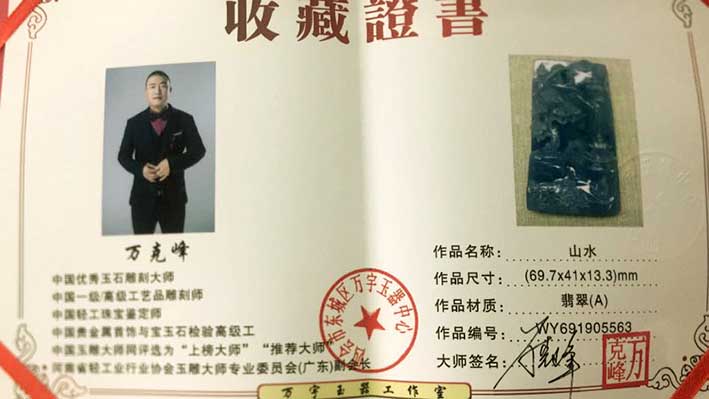 收藏證書
万克峰
中国优秀玉石雕刻大师
中国一级/高级工艺品雕刻师
中国轻工珠宝鉴定师
中国贵金属首饰与宝玉石检验高级工
中国玉雕大师网评选为“上榜大师”“推荐大师”
河南省轻工业行业协会玉雕大师专业委员会(广东)副会长
会市东城区万字玉器中心
作品名称: 山水
作品尺寸: (69.7x41x13.3)mm
作品材质: 翡翠(A)
作品编号: WY691905563
大师签名: 万克峰
万克峰
万字玉器工作室